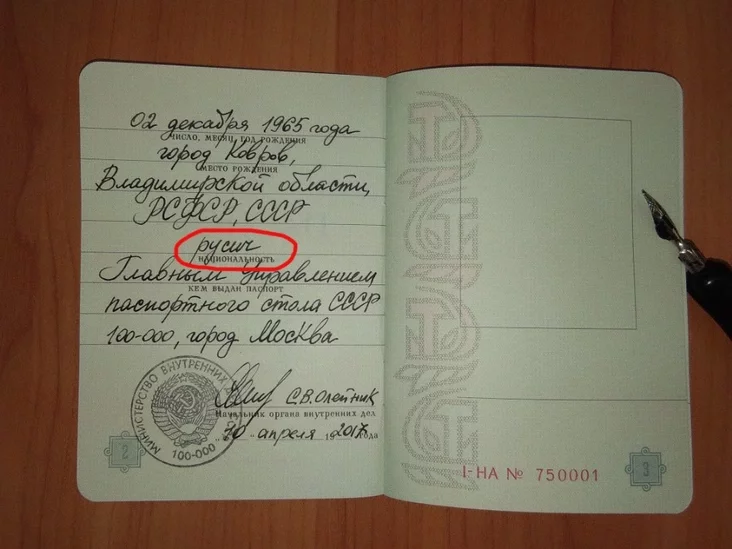 02 декабря 1965 года
ЧИСЛО, МЕСЯЦ, ГОД РОЖДЕНИЯ
город Ковров,
МЕСТО РОЖДЕНИЯ
Владимирской области,
РСФСР, СССР
русич
НАЦИОНАЛЬНОСТЬ
Главным управлением
КЕМ ВЫДАН ПАСПОРТ
паспортного стола СССР
100-000, город Москва
МИНИСТЕРСТВО ВНУТРЕННИХ
100-000
С.В.Олейник
Начальник органа внутренних дел
"20" апреля 2017 года
2
I-НА № 750001
3